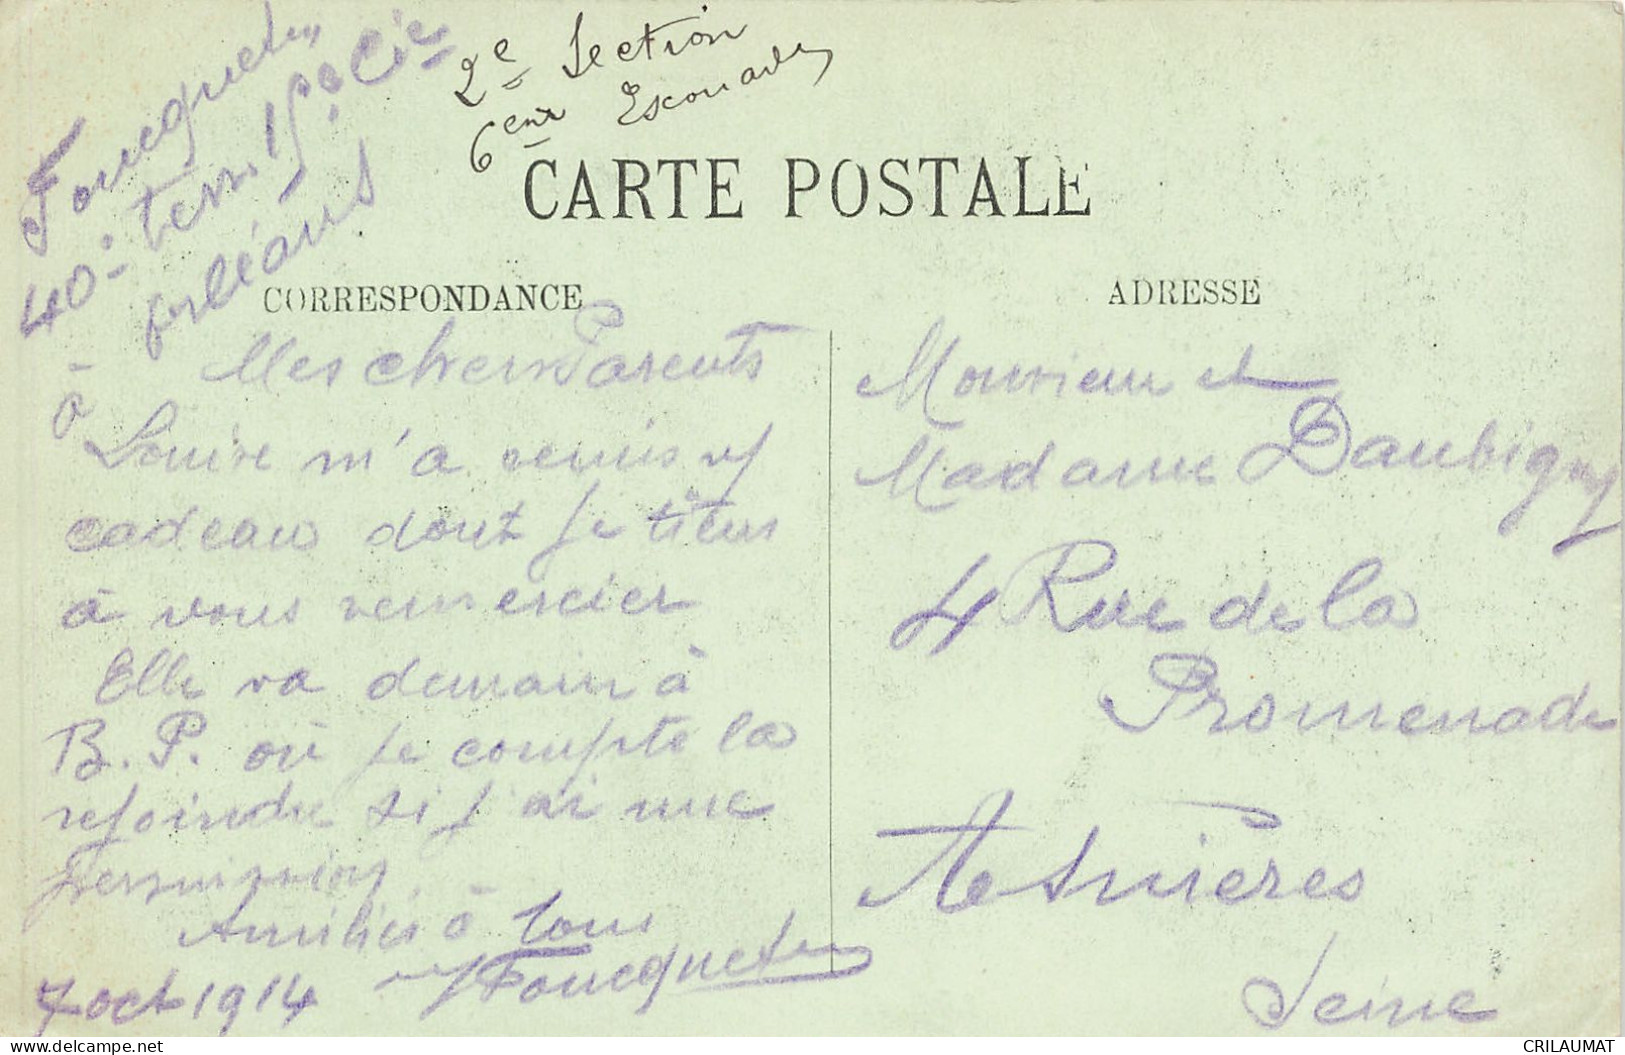 Foucqueter
40e terr. 15e Cie
à Orléans
2e Section
6eme Escouade
CARTE POSTALE
CORRESPONDANCE
ADRESSE
Mes chers Parents
Louise m'a remis vf
cadeau dont je tiens
à vous remercier
Elle va demain à
B. P. où je compte la
rejoindre si j'ai une
permission
Amitiés à tous
Foucqueter
7 oct 1914
Monsieur et
Madame Daubigny
4 Rue de la
Promenade
Asnières
Seine
www.delcampe.net
CRILAUMAT